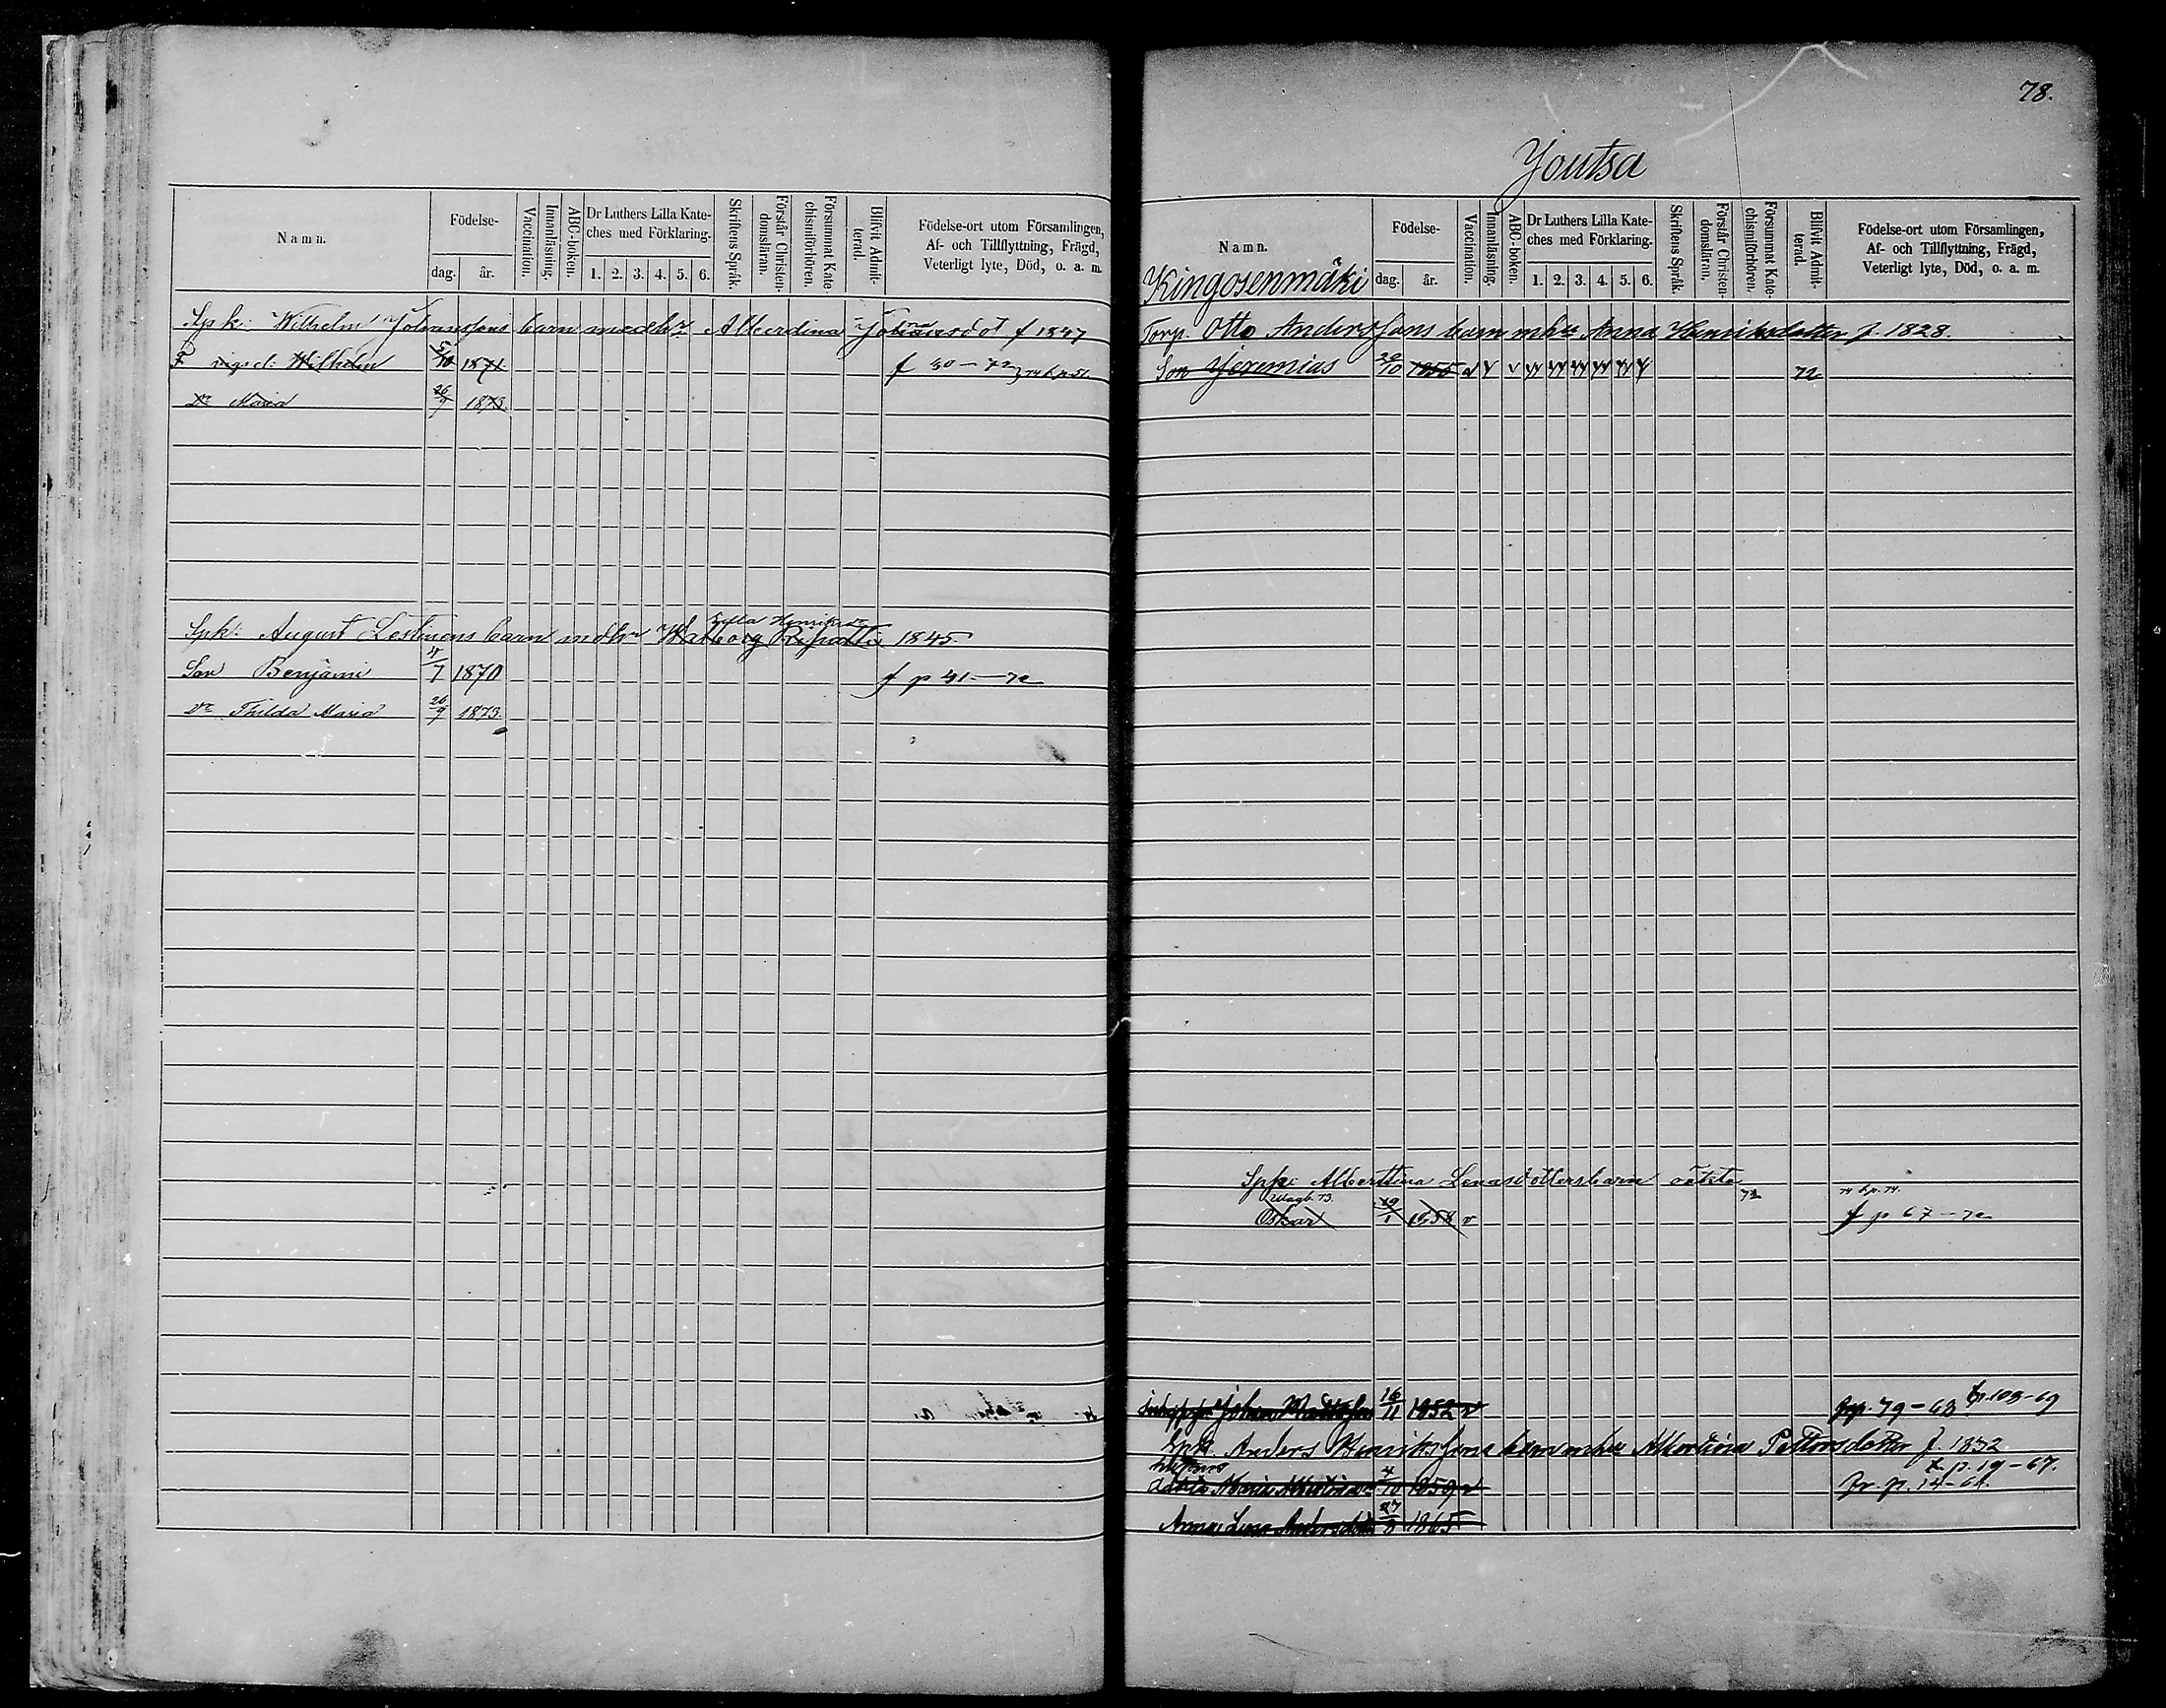 Namn.
Födelse-
dag.
år.
Vaccination.
Innanläsning.
ABC-boken.
Dr Luthers Lilla Kate-
ches med Förklaring.
1. 2. 3. 4. 5. 6.
Skriftens Språk.
Förstår Christen-
domsläran.
Försummat Kate-
chismiförhören.
Blifvit Admit-
terad.
Födelse-ort utom Församlingen,
Af- och Tillflyttning, Frägd,
Veterligt lyte, Död, o. a. m.
Spk: Wilhelm Johanssons barn med hu Albertina f 1847
Wilhelm 5/10 1871. f 30-72
Dr Maria 26/9 1873.
Lilla Henriksdr
Spk: August barn mdhu Walborg 1845.
Son Benjami 4/7 1870 f p 41-72
Dr Thilda Maria 26/9 1873.
78.
Joutsa
Namn.
Kingosenmäki
Födelse-
dag.
år.
Vaccination.
Innanläsning.
ABC-boken.
Dr Luthers Lilla Kate-
ches med Förklaring.
1. 2. 3. 4. 5. 6.
Skriftens Språk.
Förstår Christen-
domsläran.
Försummat Kate-
chismiförhören.
Blifvit Admit-
terad.
Födelse-ort utom Församlingen,
Af- och Tillflyttning, Frägd,
Veterligt lyte, Död, o. a. m.
Torp. Otto Anderssons barn mhu Anna Henriksdotter f. 1828.
Son Jeremias 20/10 1855 v 72
Spk: Alberttina Lenasdotters barn oäkta
Oskar 19/1 1858 v f p 67-72
Johan Mattsson 16/11 1852 v frp. 79-63 tp. 103-69
Spk. Anders Henrikssons barn mhu Albertina Pettersdotter f. 1832
Maria 4/10 1859 v fr p. 14-64. t p. 19-67.
Anna Lena Andersdotter 27/8 1865